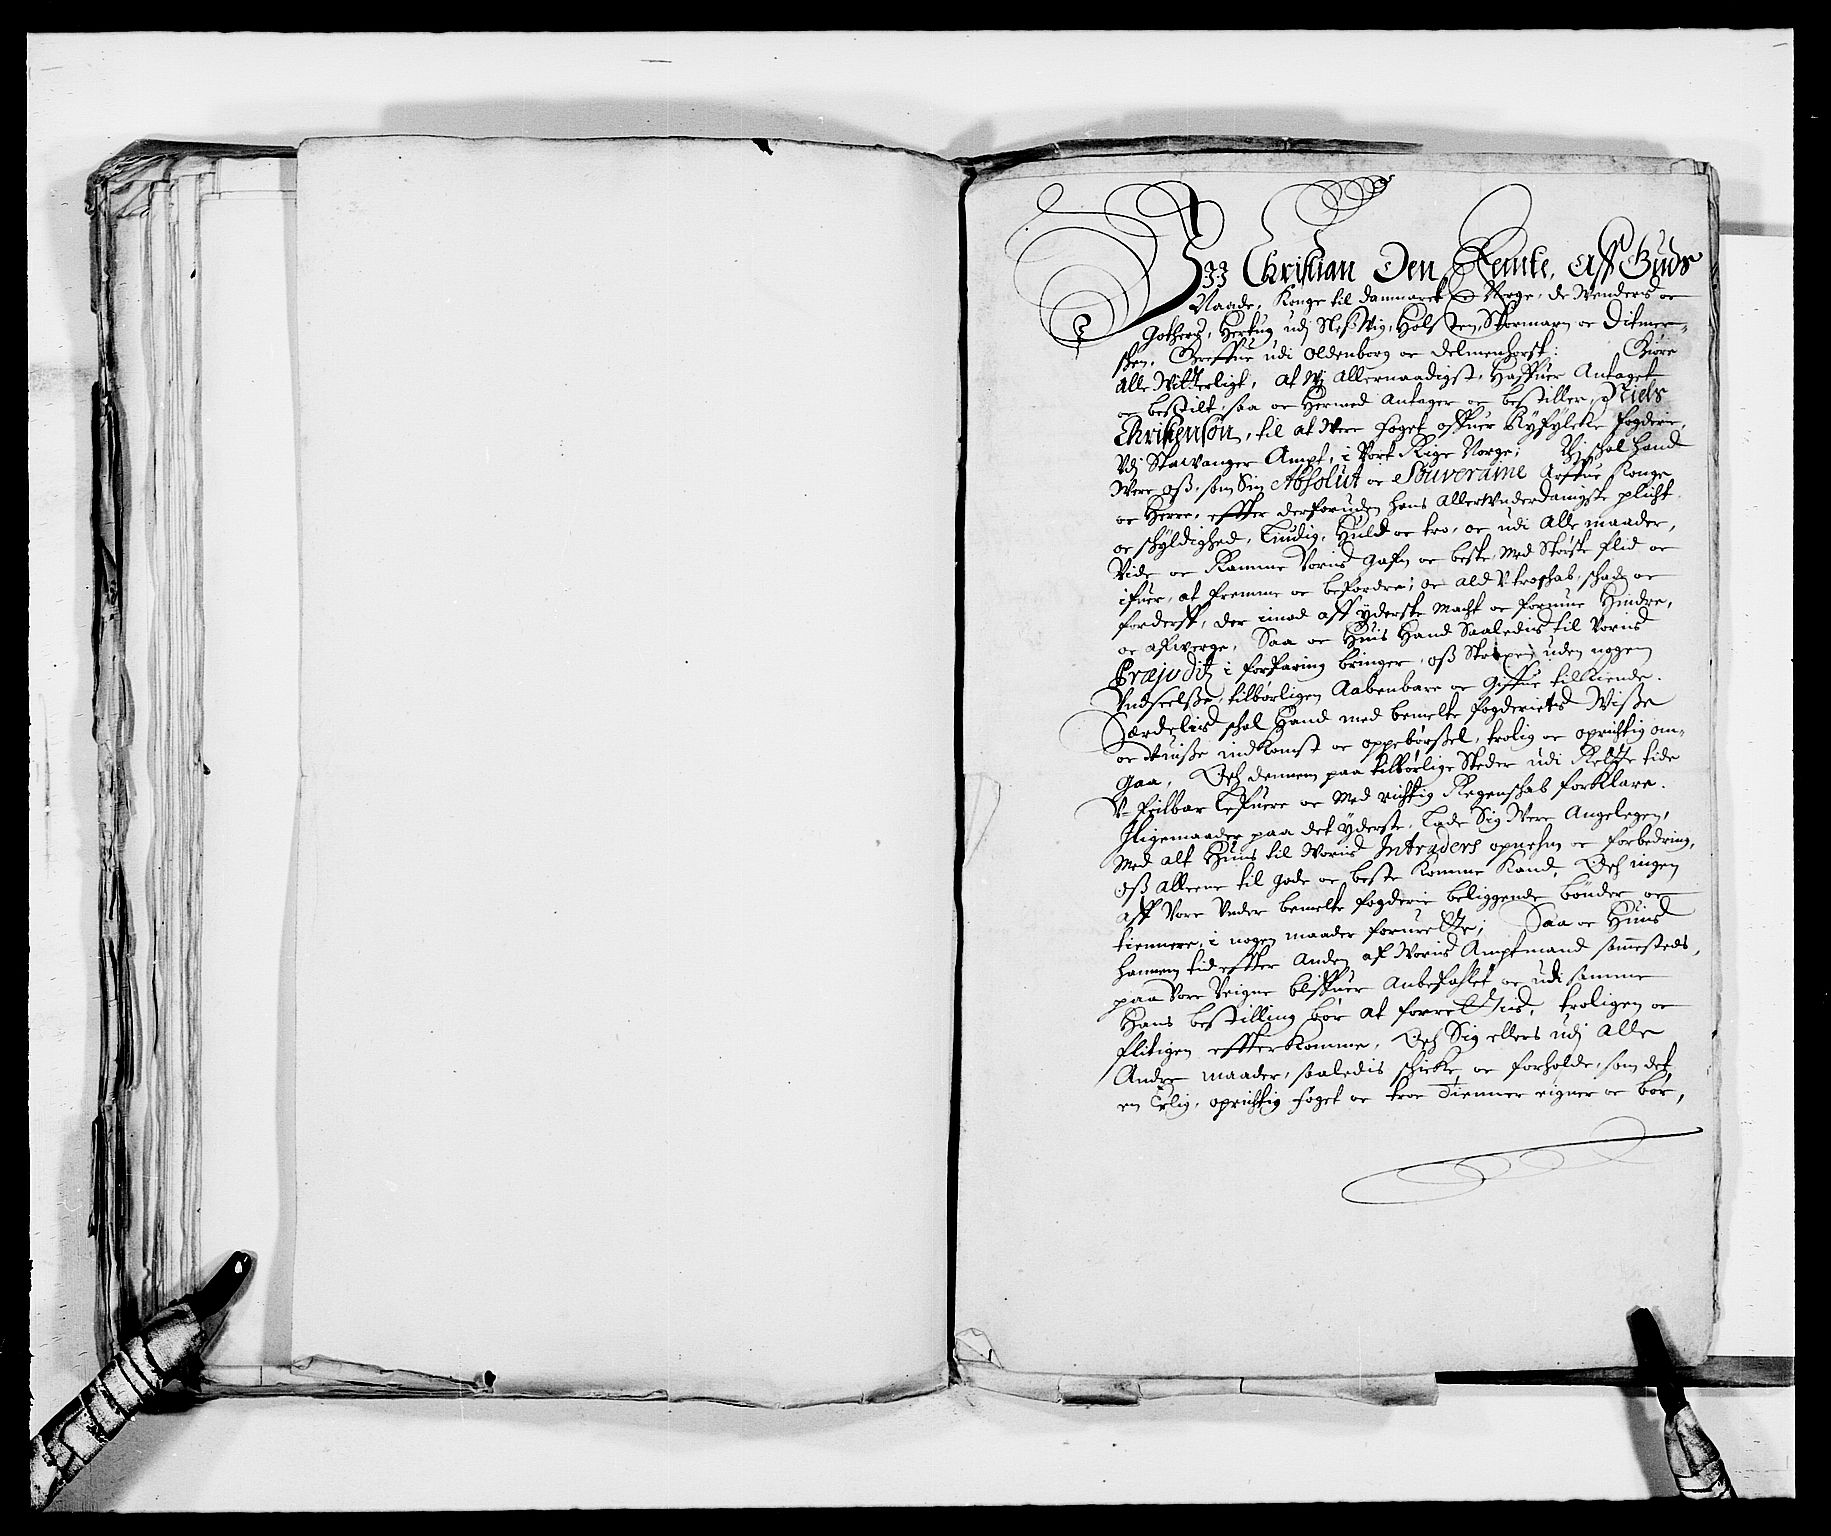 Wii Christian Den Femte, Aff Guds
Naade, Konge til Danmarck oc Norge, de Wenders oc
Gothers, Hertug udj Sleßvig, Holsten, Stormarn oc Ditmer-
schen, Greffue udi Oldenborg oc Delmenhorst: Giøre
Alle Witterligt, At Wj Allernaadigst, Haffuer Antaget
oc bestilt, saa oc Hermed Antager oc bestiller, Niels
Christensøn, til at Were foget offuer Ryfylcke fogderie,
Vdj Stawanger Ampt, i Vort Rige Norge; Vj schal Hand
Were oß, som Sin Absolut oc Souveraine Arffue Konge
oc Herre, effter derforuden hans Allerunderdanigste plicht
oc schyldighed, Liudig, Huld oc tro, oc udi Alle maader,
Vide oc Ramme Voris Gafn oc beste, Med Største flid oc
ifuer, at fremme oc befordre; oc Ald Vtroschab, schade oc
forderff, der imod aff yderste Macht oc formue Hindre,
oc Afwerge, Saa oc Huis Hand Saaledis til Voris
Præjuditz i forfaring bringer, oß Strax uden nogen
Undseelße, tilbørligen Aabenbare oc Giffue tilkiende.
Særdelis schal Hand med bemelte fogderietz Wiße
oc Vuiße indkomst oc oppebørßel, trolig oc oprichtig om-
gaa, Och dennem paa tilbørlige Steder udi Rette tide
V-feilbar Lefuere oc Med richtig Regenschab forklare.
Jligemaader paa det yderste, Lade Sig Were Angelegen,
Med alt Huis til Woris Intraders opnehm oc forbedring,
oß Alleene til gode oc beste Komme Kand, Och ingen
aff Vore Under bemelte fogderie beliggende bønder oc
tiennere, i nogen maader forurette; Saa oc Huis
hannem tid effter Anden af Woris Amptmand sammesteds,
paa Vore Veigne bliffuer Anbefahlet oc udi samme
Hans bestilling bør at forrettis, troligen oc
flitigen effterkomme, Och Sig ellers udj Alle
Andre maader, saaledis schicke oc forholde, som det
en Erlig, oprichtig foget oc troe Tienner eigner oc bør,